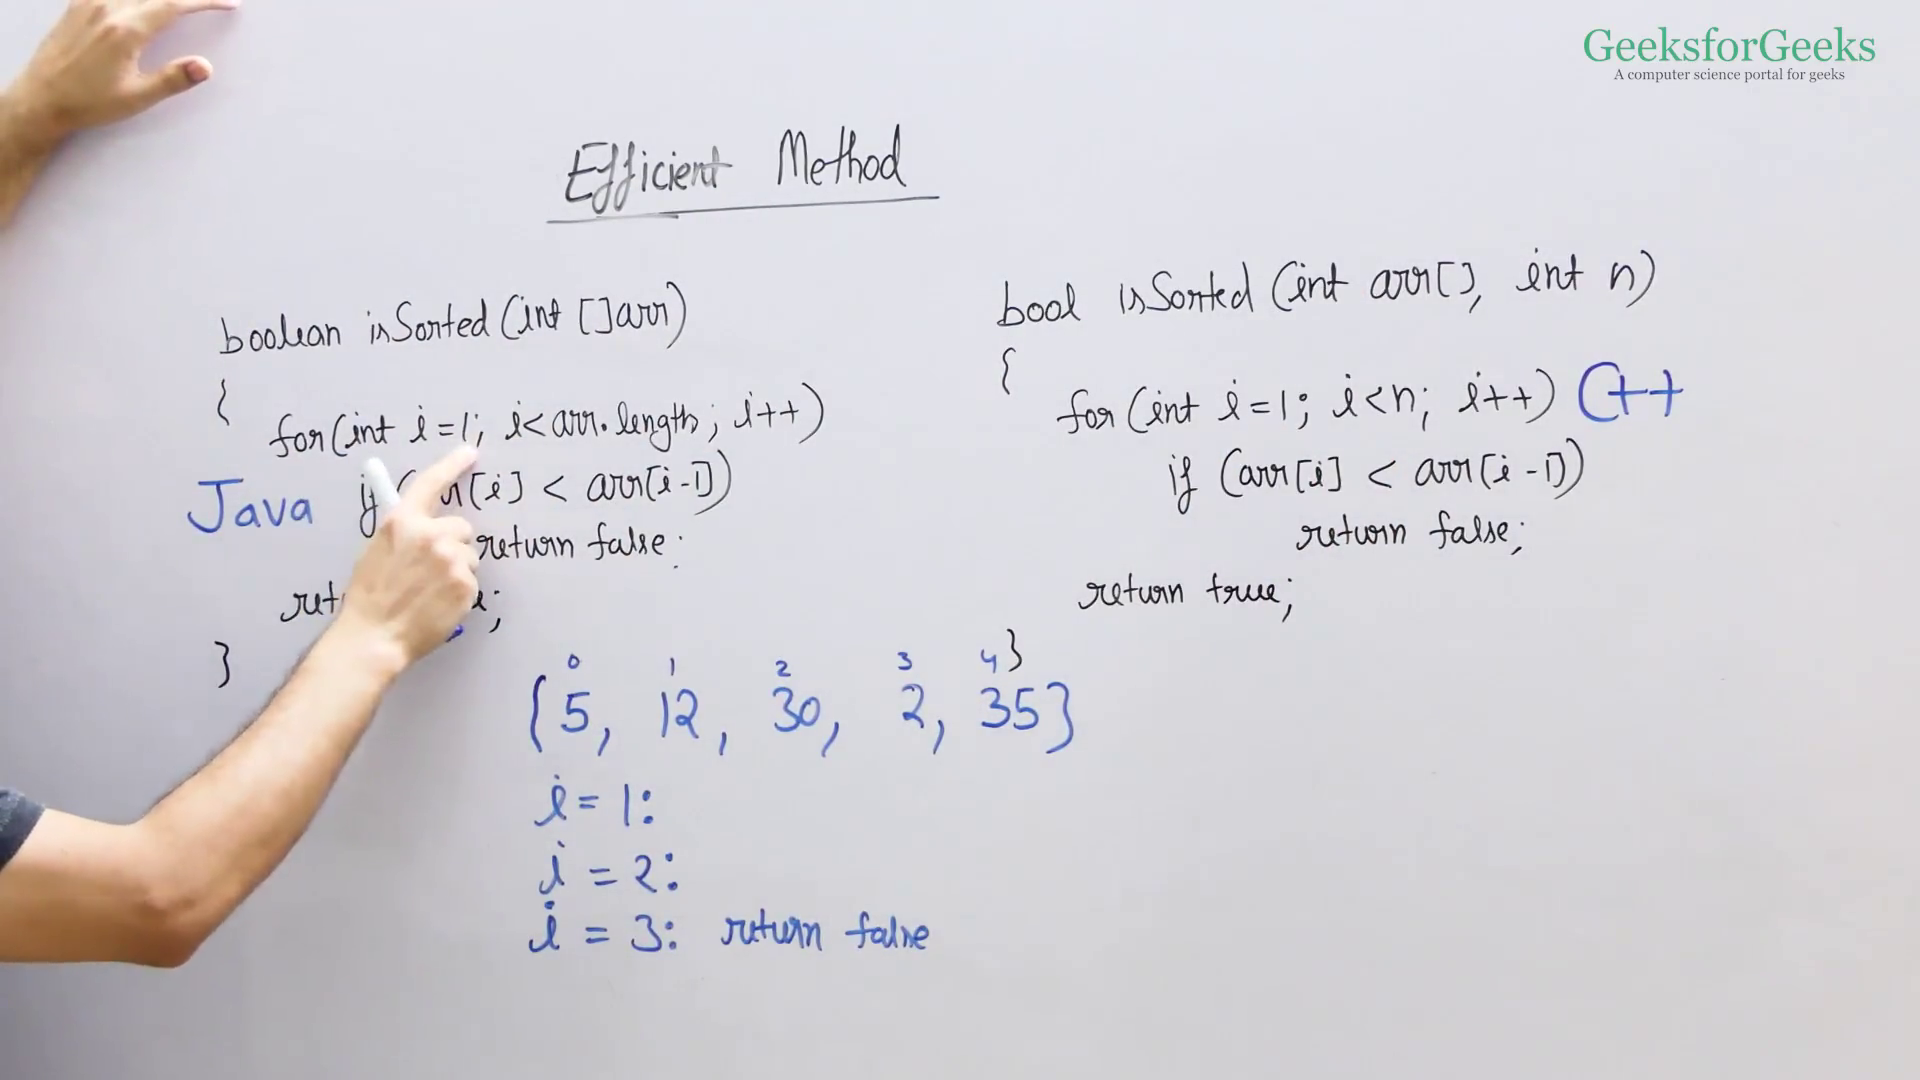 GeeksforGeeks
A computer science portal for geeks
Efficient Method
boolean isSorted (int []arr)
{
for(int i=1; i<arr.length; i++)
Java
if ( [i] < arr[i-1])
return false;
;
}
bool isSorted (int arr[], int n)
{
for(int i=1; i<n; i++) C++
if (arr[i] < arr[i-1])
return false;
return true;
}
0 1 2 3 4
{5, 12, 30, 2, 35}
i = 1:
i = 2:
i = 3: return false